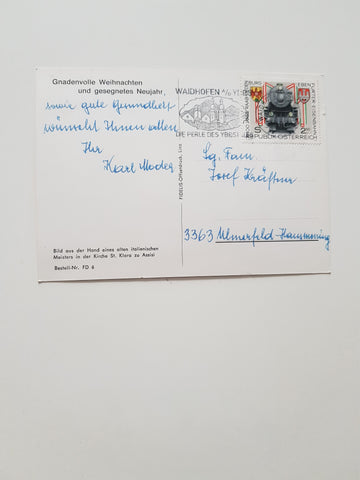 Gnadenvolle Weihnachten
und gesegnetes Neujahr,
sowie gute Gesundheit
wünscht Ihnen allen
Ihr
Karl Moder
Bild aus der Hand eines alten italienischen
Meisters in der Kirche St. Klara zu Assisi
Bestell-Nr. FD 6
FIDELIS-Offsetdruck, Linz
WAIDHOFEN
DIE PERLE DES YBBST
REPUBLIK ÖSTERREICH
S 2
Sg. Fam.
Josef Kräftner
3363 Ulmerfeld-Hausmening